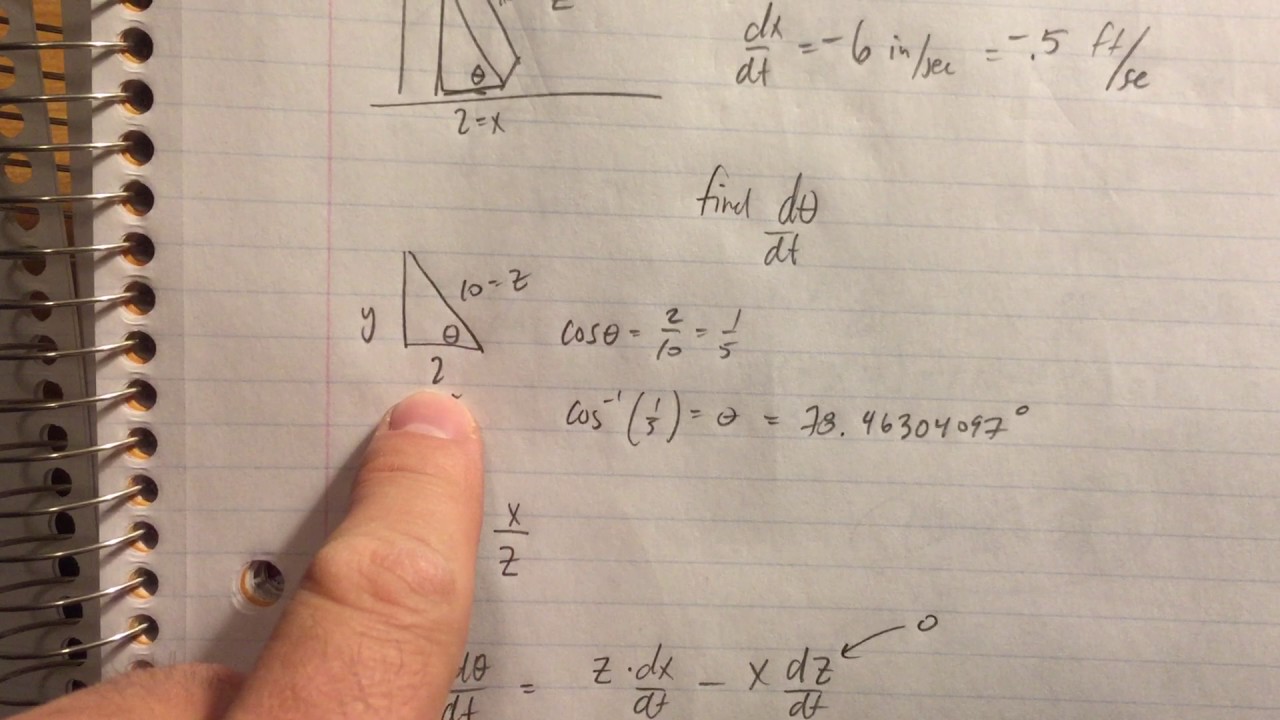 dx/dt = -6 in/sec = -.5 ft/se
θ
2=x
find dθ/dt
10=z
y
θ
2
cosθ = 2/10 = 1/5
cos⁻¹(1/5) = θ = 78.46304097°
x/z
dθ/dt = z·dx/dt - x dz/dt
0